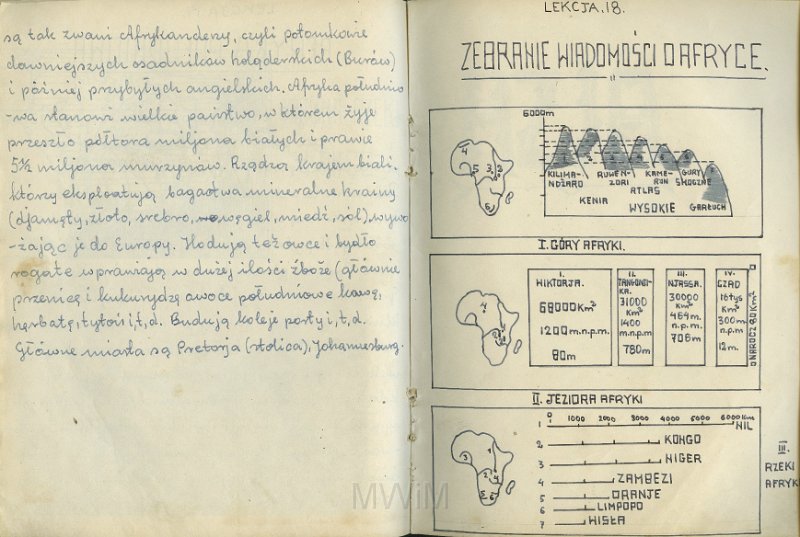 są tak zwani Afrykanderzy, czyli potomkowie
dawniejszych osadników holęderskich (Burów)
i później przybyłych angielskich. Afryka południo
-wa stanowi wielkie państwo, w którem żyje
przeszło półtora miljona białych i prawie
5½ miljona murzynów. Rządzą krajem biali.
którzy eksploatują bagactwa mineralne krainy
(djamęty, złoto, srebro, węgiel, miedź, sól), wywo
-żając je do Europy. Hodują też owce i bydło
rogate uprawiają w dużej ilości zboże (głównie
przenicę i kukurydzę owoce południowe kawę,
herbatę, tytoń i,t,d. Budują koleje porty i,t,d.
Główne miasta są Pretorja (stolica), Johannesburg.
LEKCJA.18.
ZEBRANIE WIADOMOŚCI O AFRYCE.
6000m
4
5
3
6
KILIMA-
NDŻARO
KENIA
RUWEN-
ZORI
ATLAS
KAME-
RUN
WYSOKIE
GÓRY
SMOCZNE
GARŁUCH
I. GÓRY AFRYKI.
4
I.
WIKTORJA.
68000 Km²
1200 m.n.p.m.
80m
II.
TANGANJI-
KA.
31000
Km²
1400
m.n.p.m
780m
III.
NJASSA.
30000
Km²
464m.
n.p.m.
706m
IV.
CZAD
16tys
Km²
300m
n.p.m
12m.
NAROCZ 80 Km²
II. JEZIORA AFRYKI
0 1000 2000 3000 4000 5000 6000 Km
1 NIL
2 KONGO
3 NIGER
4 ZAMBEZI
5 ORANJE
6 LIMPOPO
7 WISŁA
3
1
2
4
5
6
III.
RZEKI
AFRYKI
MWiM